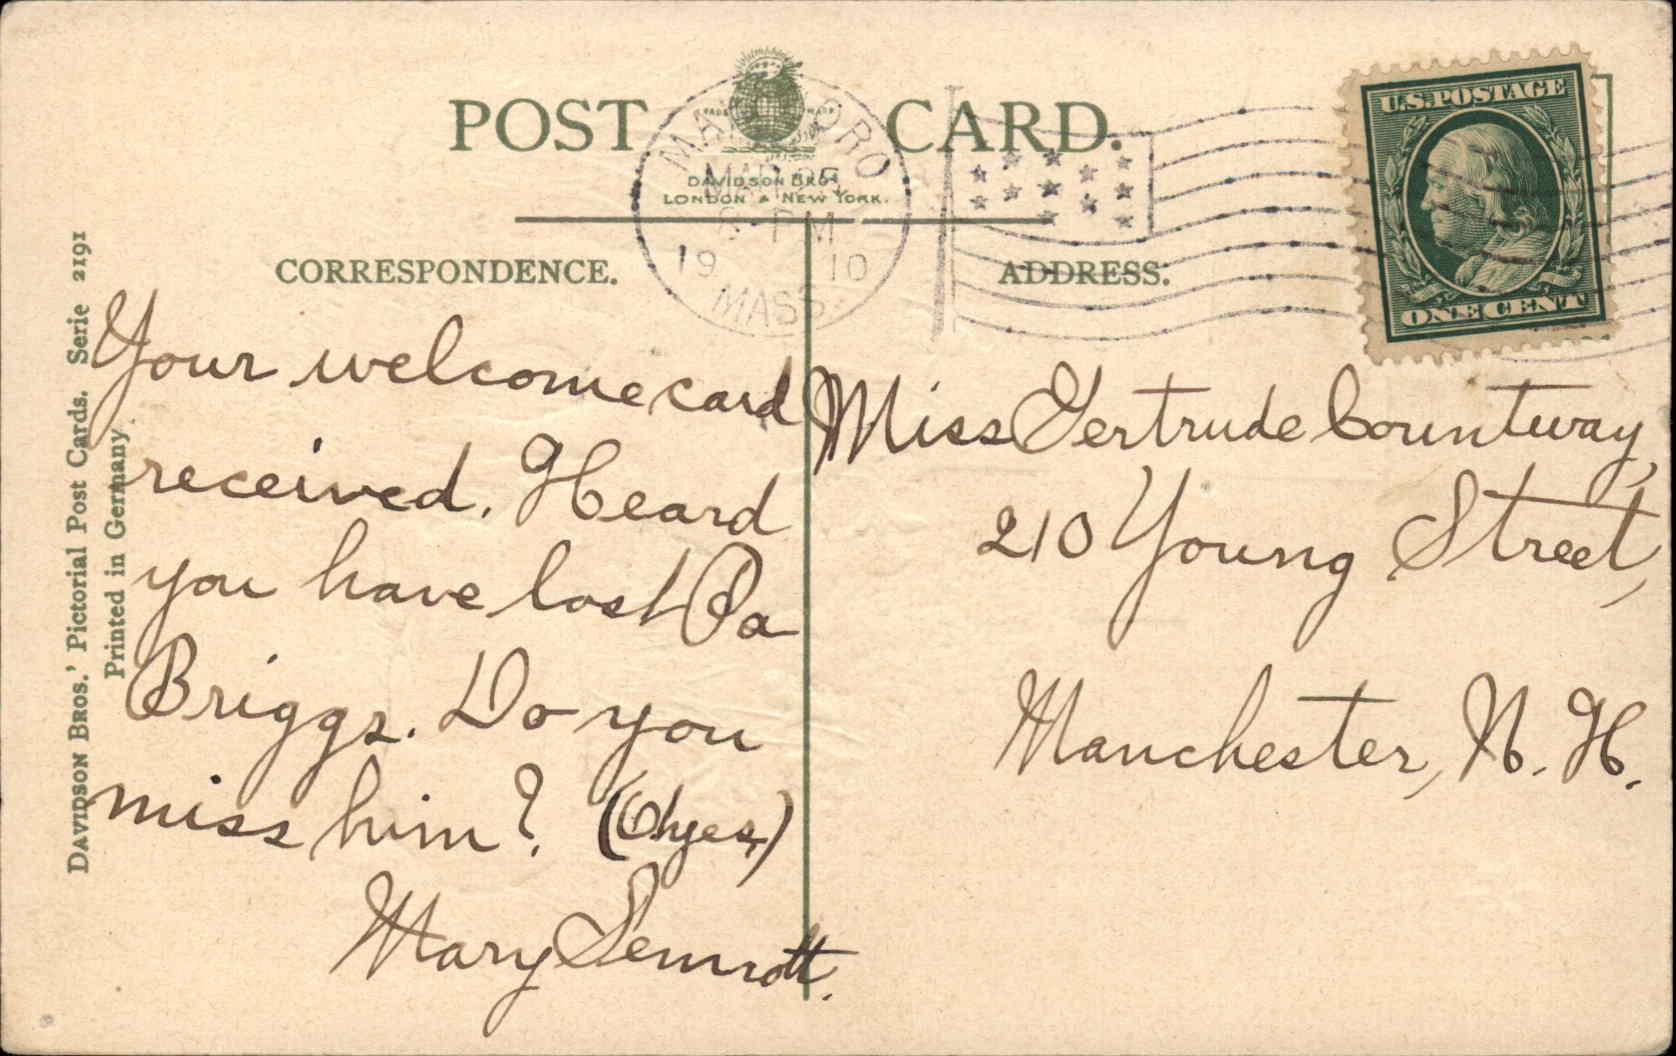 POST CARD.
TRADE MARK
DAVIDSON BROS.
LONDON & NEW YORK.
MAR
PM
19 10
MASS.
U.S. POSTAGE
ONE CENT
CORRESPONDENCE.
ADDRESS:
DAVIDSON BROS.' Pictorial Post Cards. Serie 2191
Printed in Germany.
Your welcome card
received. Heard
you have lost Pa
Briggs. Do you
miss him? (Oh yes,)
Mary Sennott.
Miss Gertrude Countway,
210 Young Street,
Manchester, N. H.